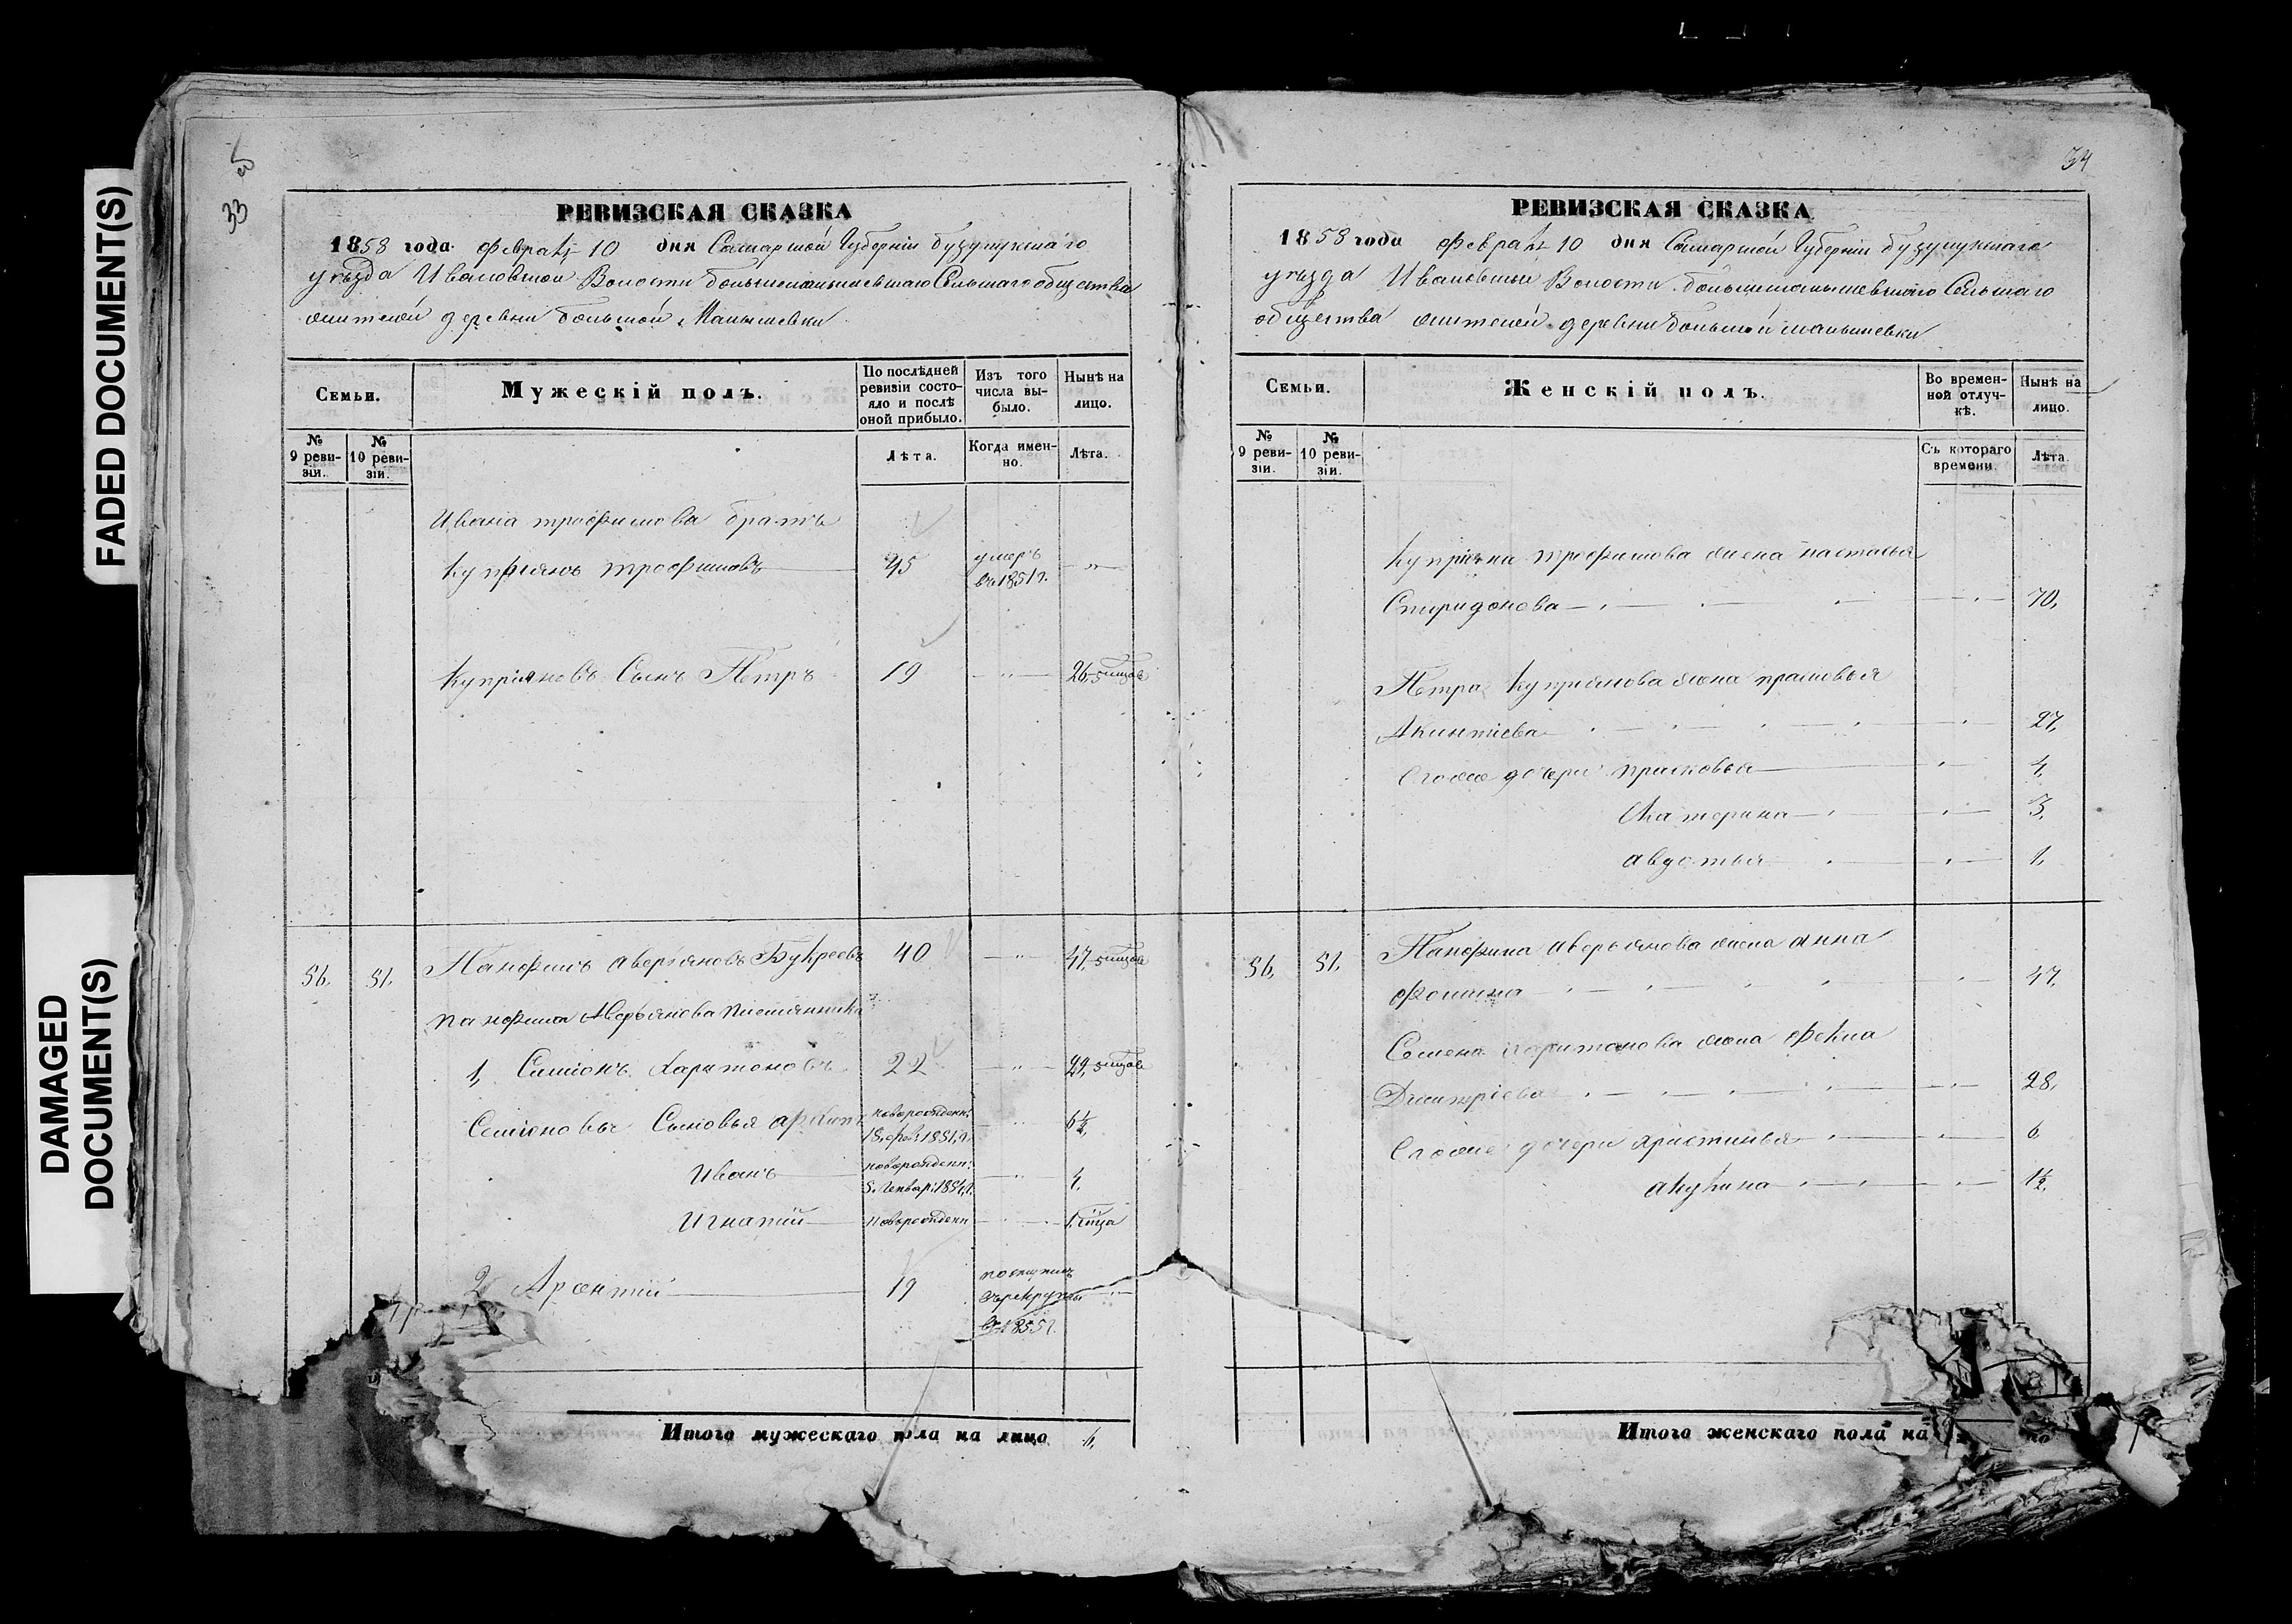 FADED DOCUMENT(S)
DAMAGED
DOCUMENT(S)
33
РЕВИЗСКАЯ СКАЗКА
1858 года феврал 10 дня Самарской Губерніи бузулукскаго
уезда Ивановской Волости большемалышевскаго Сельскаго общества
жителей деревни большой Малышевки
Семьи.
Мужескій полъ.
По послѣдней
ревизіи состо-
яло и послѣ
оной прибыло.
Изъ того
числа вы-
было.
Нынѣ на
лицо.
№
9 реви-
зіи.
№
10 реви-
зіи.
Лѣта.
Когда имен-
но.
Лѣта.
Ивана трофимова братъ
Купріянъ трофимовъ 45 умеръ въ 1851 г. "
Купріяновъ Сынъ Петръ 19 " 26
56. 51. Панфилъ аверіяновъ Букреевъ 40 " 47
панфила Аверьянова племянники
1, Симіонъ Харитоновъ 22 " 29
Семіоновы Сыновья архипъ новорожден. 18 фев. 1851 г. " 6½
Иванъ новорожденн. 5 Генвар. 1854 г. " 4.
Игнатій новорожденн
2 Арентій 19 поступилъ въ рекруты въ 1855 г. "
Итого мужескаго пола на лицо 6,
34
РЕВИЗСКАЯ СКАЗКА
1858 года феврал 10 дня Самарской Губерніи бузулукскаго
уезда Ивановской Волости большемалышевскаго Сельскаго
общества жителей деревни большой малышевки
Семьи.
Женскій полъ.
Во времен-
ной отлуч-
кѣ.
Нынѣ на
лицо.
№
9 реви-
зіи.
№
10 реви-
зіи.
Съ котораго
времени.
Лѣта.
Купріяна трофимова жена настасья
Спиридонова 70,
Петра Купріянова жена прасковья
Акинтіева 27,
Егоже дочери прасковья 4,
Катерина 3,
авдотья 1,
56, 51, Панфила аверьянова жена анна
фомина 47,
Семена харитонова жена фекла
Дмитріева 28,
Егоже дочери христинья 6
акулина 1½,
Итого женскаго пола на